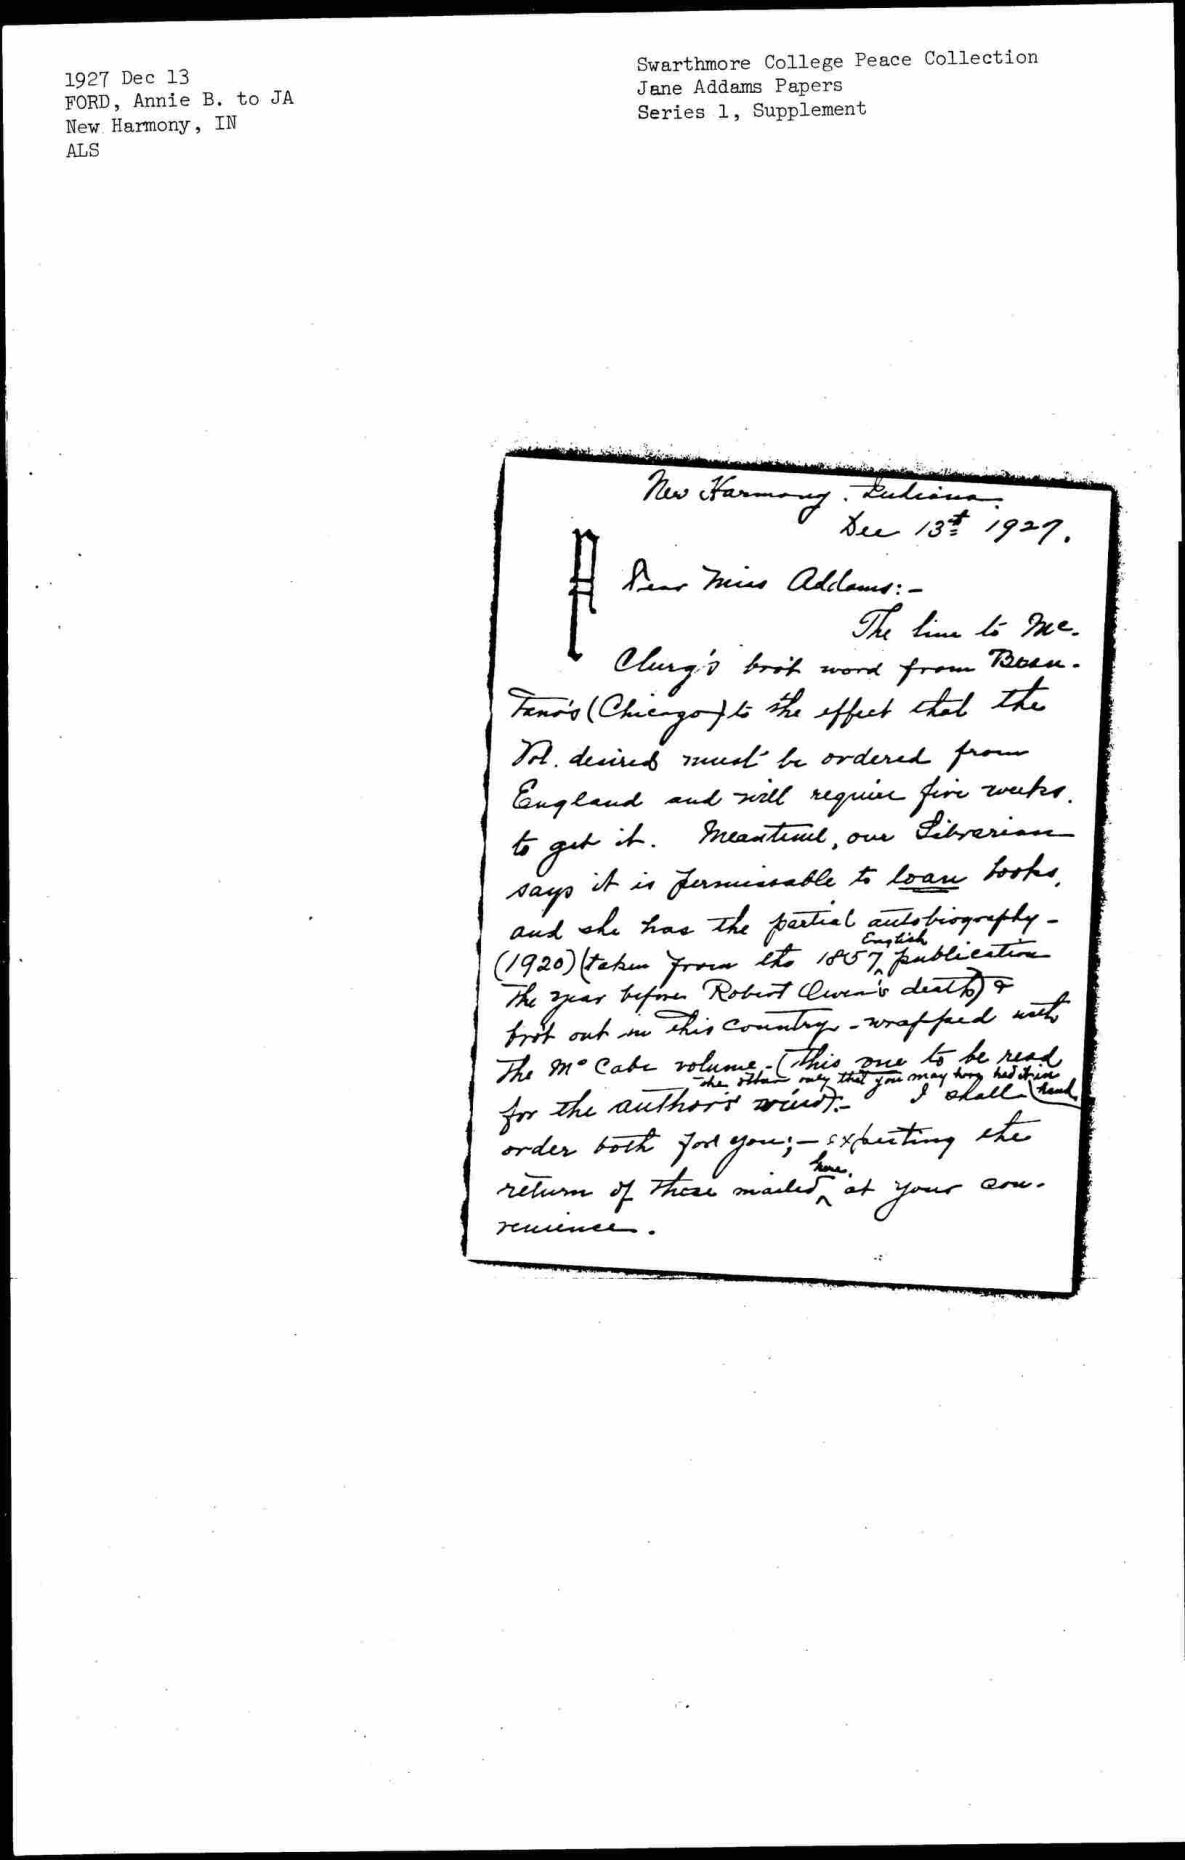 1927 Dec 13
FORD, Annie B. to JA
New Harmony, IN
ALS
Swarthmore College Peace Collection
Jane Addams Papers
Series 1, Supplement
New Harmony. Indiana.
Dec 13th 1927.
Dear Miss Addams:-
The line to Mc.
Clurg's bro't word from Bren-
Tano's (Chicago) to the effect that the
Vol. desired must be ordered from
England and will require five weeks.
to get it. Meantime, our Librarian
says it is permissable to loan books,
and she has the partial autobiography-
English
(1920) (taken from the 1857 ^ publication
The year before Robert Owen's death) &
bro't out in this country - wrapped with
The McCabe volume - (This one to be read
- the other only that you may have had it in
for the author's mind).- I shall hand
order both for you; - expecting the
here.
return of these mailed ^ at your con-
venience.